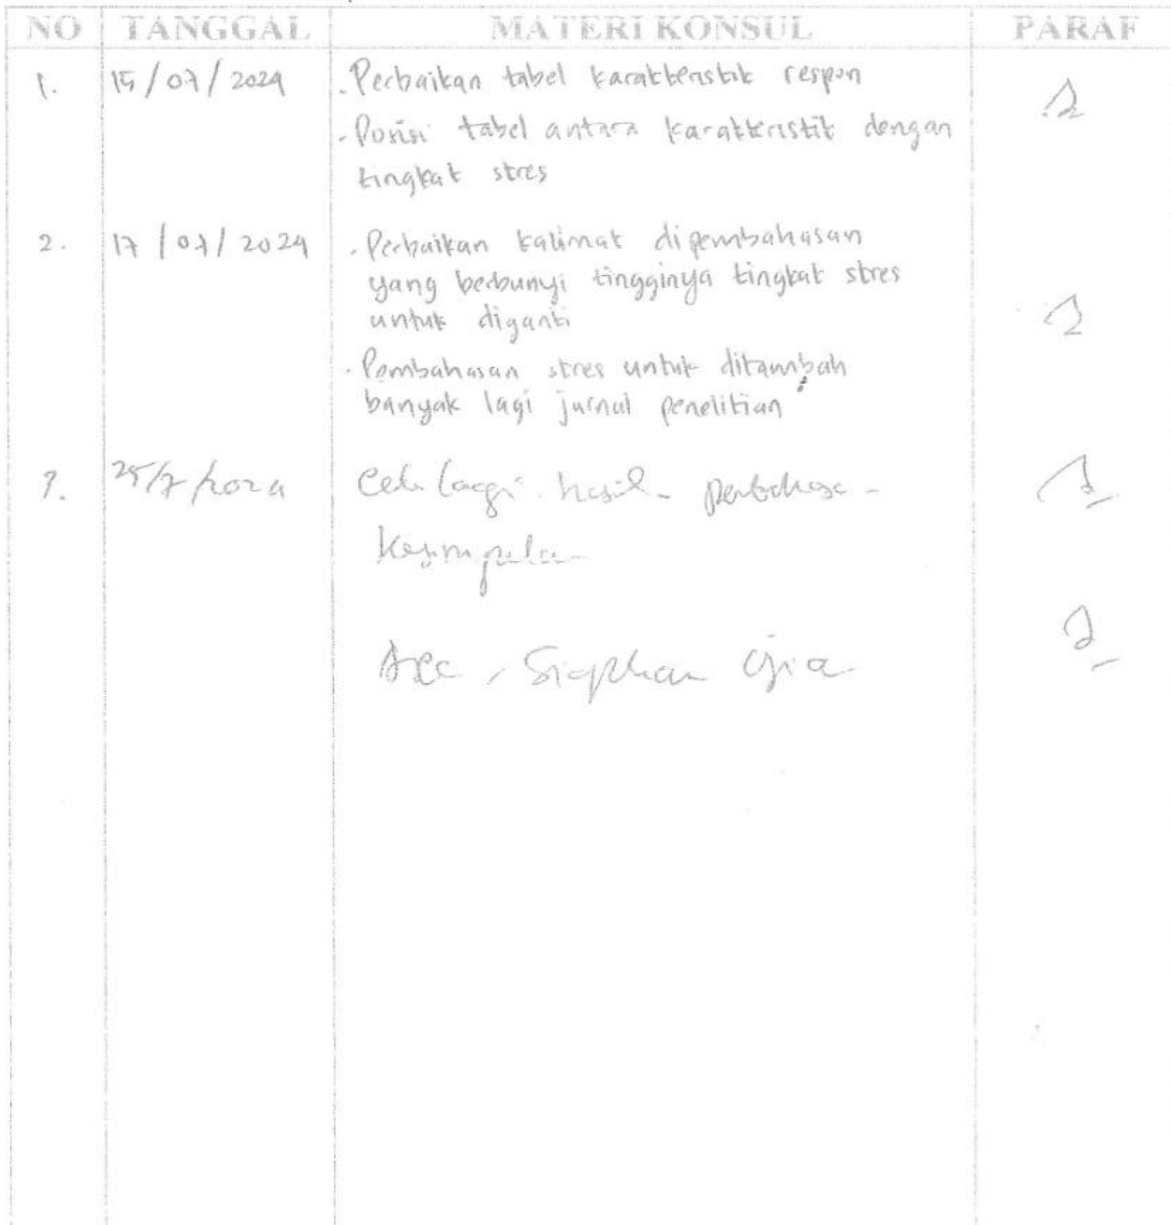 NO TANGGAL MATERI KONSUL PARAF
1. 15/07/2024 . Perbaikan tabel karakteristik respon
. Posisi tabel antara karakteristik dengan
tingkat stres
2. 17/07/2024 . Perbaikan kalimat dipembahasan
yang berbunyi tingginya tingkat stres
untuk diganti
. Pembahasan stres untuk ditambah
banyak lagi jurnal penelitian
3. 25/7 2024 Cek lagi hasil
Kesimpulan
Acc, Siapkan